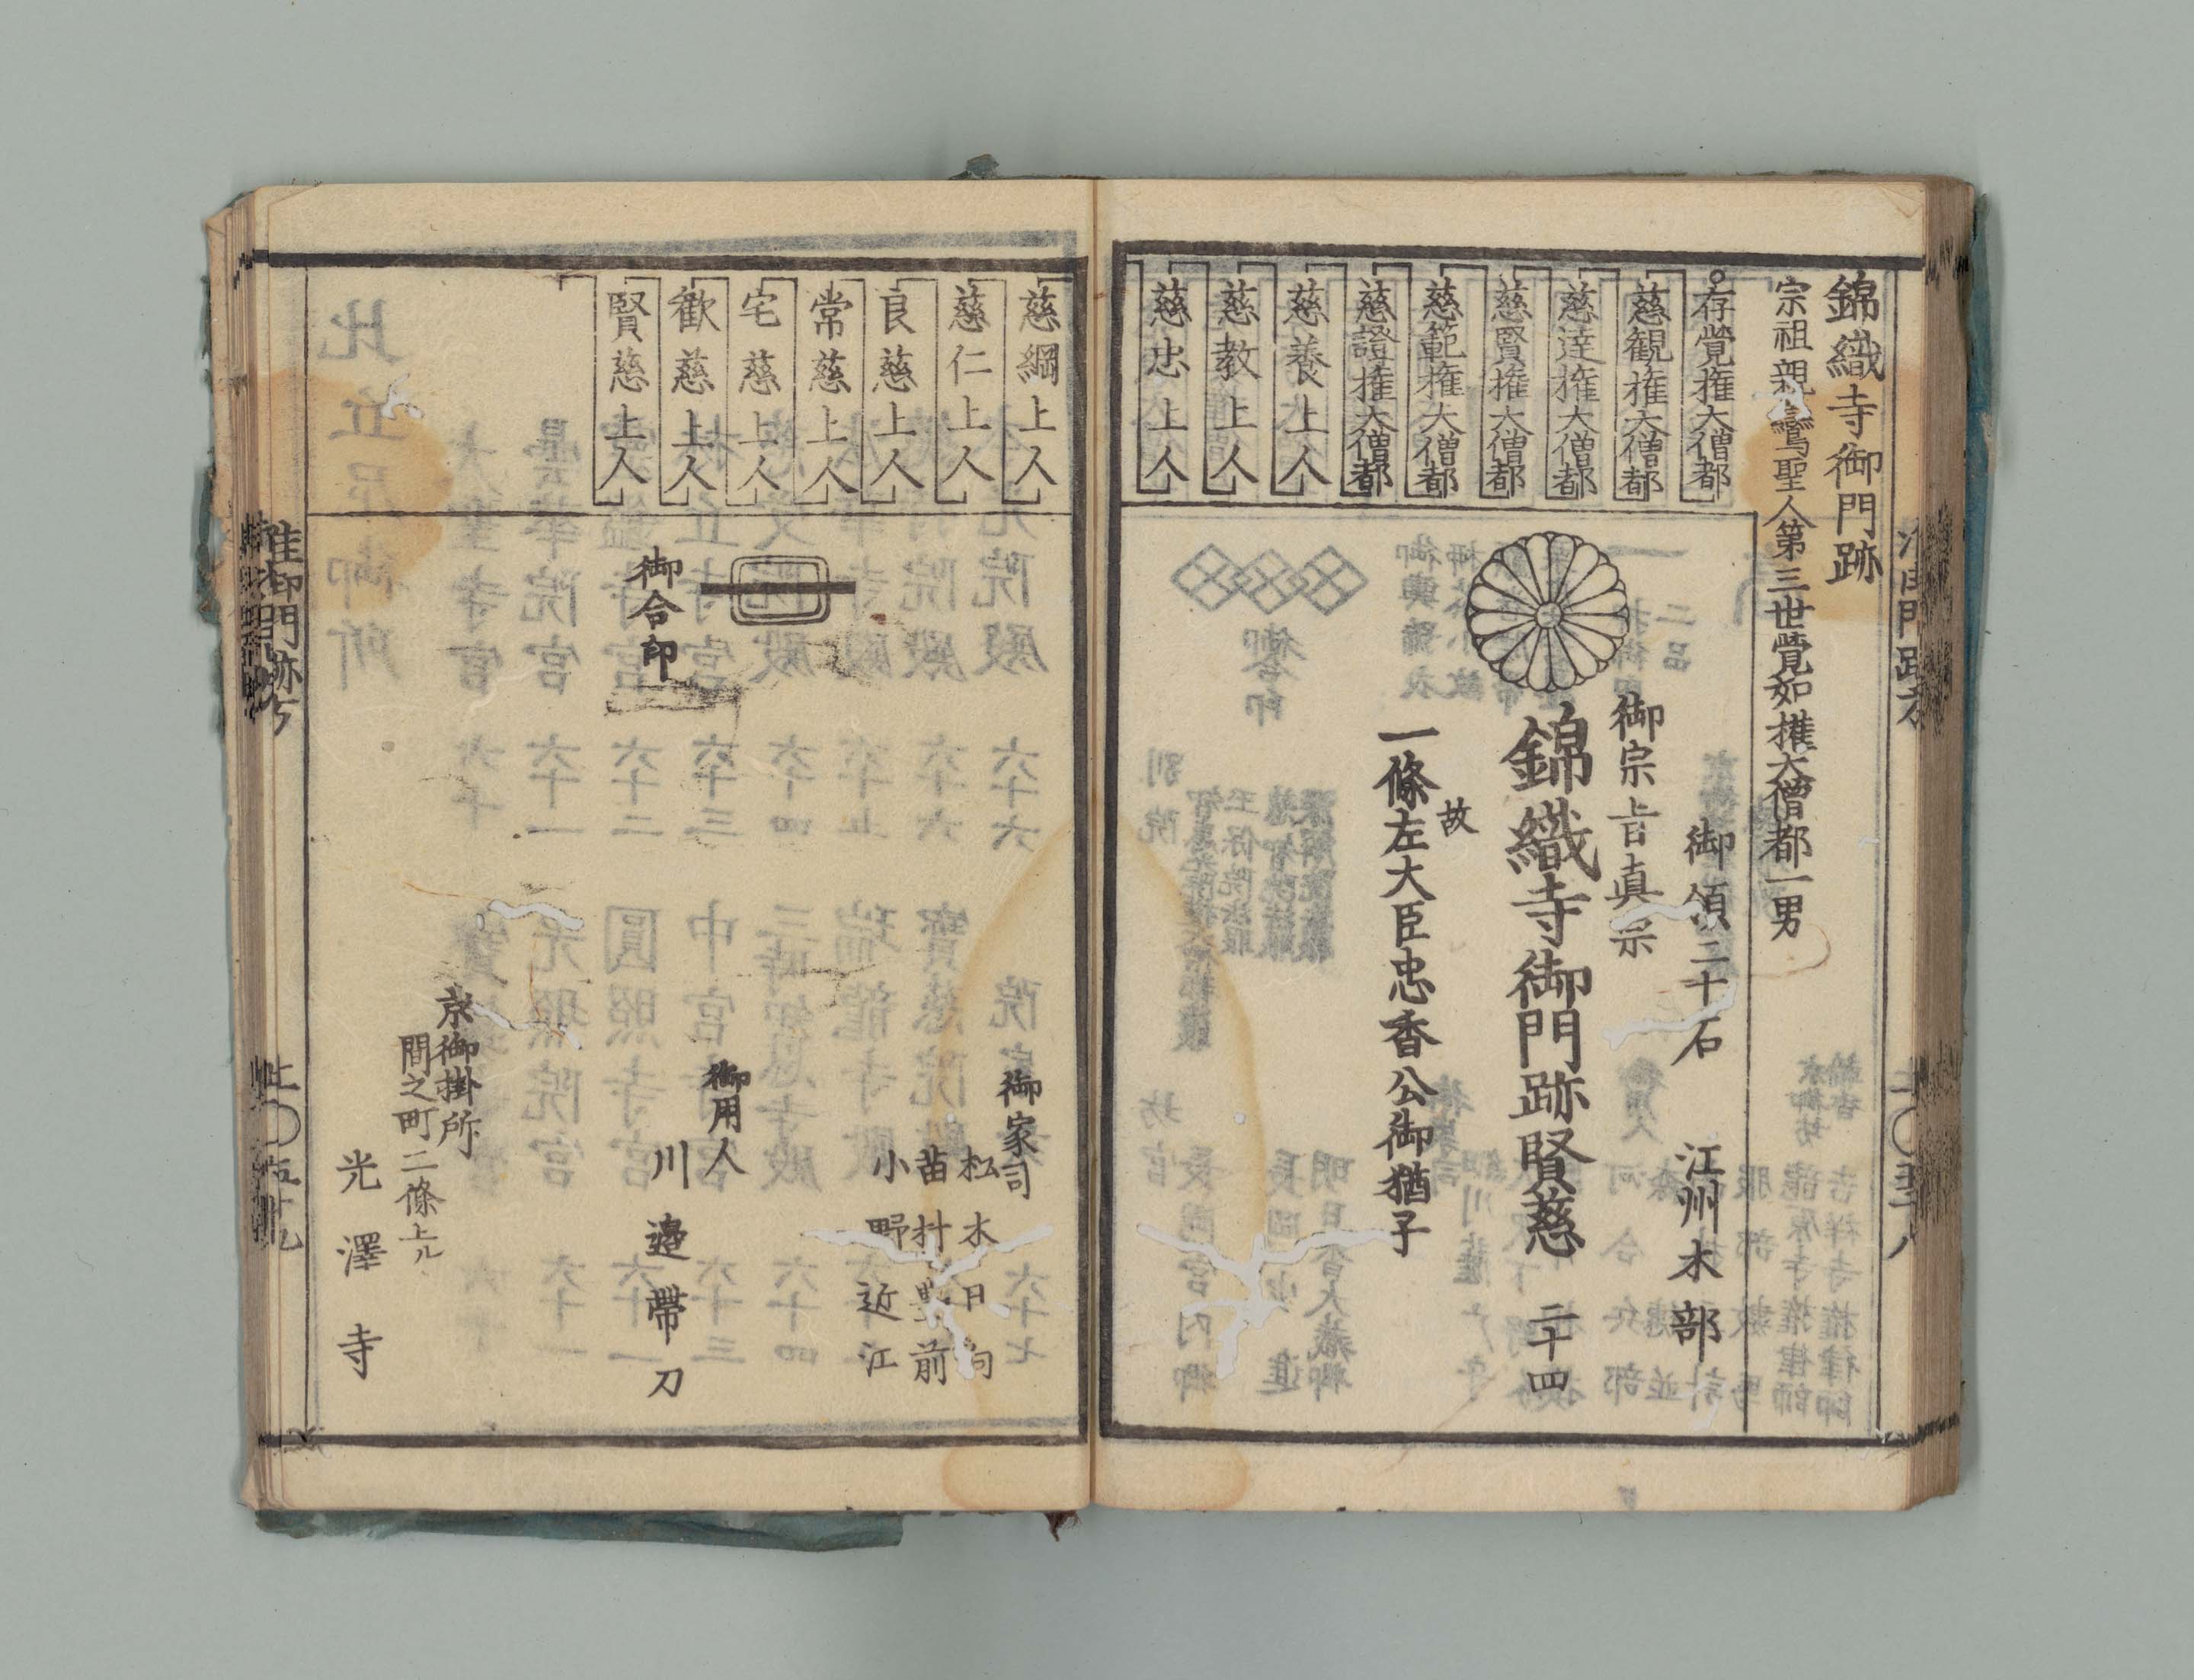 錦織寺御門跡
宗祖親鸞聖人第三世覺如権大僧都一男
存覺権大僧都
慈観権大僧都
慈達権大僧都
慈賢権大僧都
慈範権大僧都
慈證権大僧都
慈養上人
慈教上人
慈忠上人
御領二十石
江州木部
御宗旨真宗
錦織寺御門跡賢慈
二十四
故
一條左大臣忠香公御猶子
慈綱上人
慈仁上人
良慈上人
常慈上人
宅慈上人
歓慈上人
賢慈上人
御合印
御家司
松木日向
苗村豊前
小野近江
御用人
川邉帶刀
京御掛所
間之町二條上ル
光澤寺
准御門跡
上〇五十九